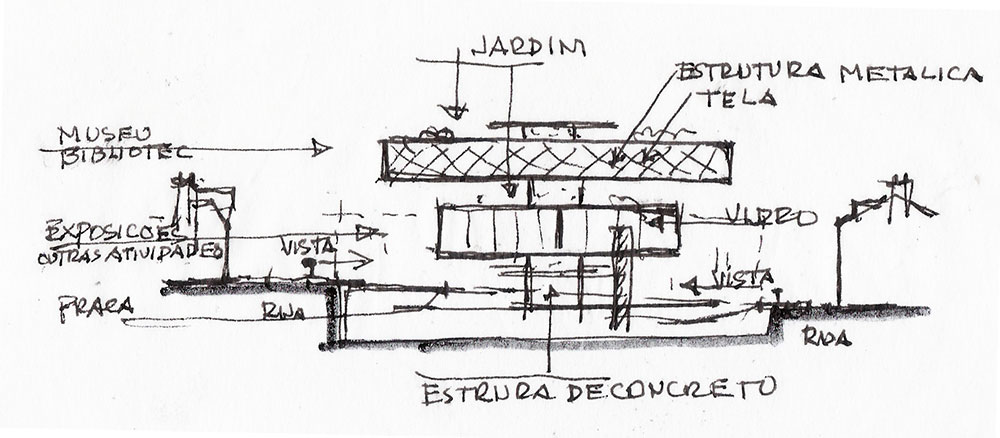 JARDIM
ESTRUTURA METALICA
TELA
MUSEU
BIBLIOTEC
EXPOSICOES
OUTRAS ATIVIDADES
VISTA
VIDRO
VISTA
PRACA
RUA
RUA
ESTRURA DE CONCRETO